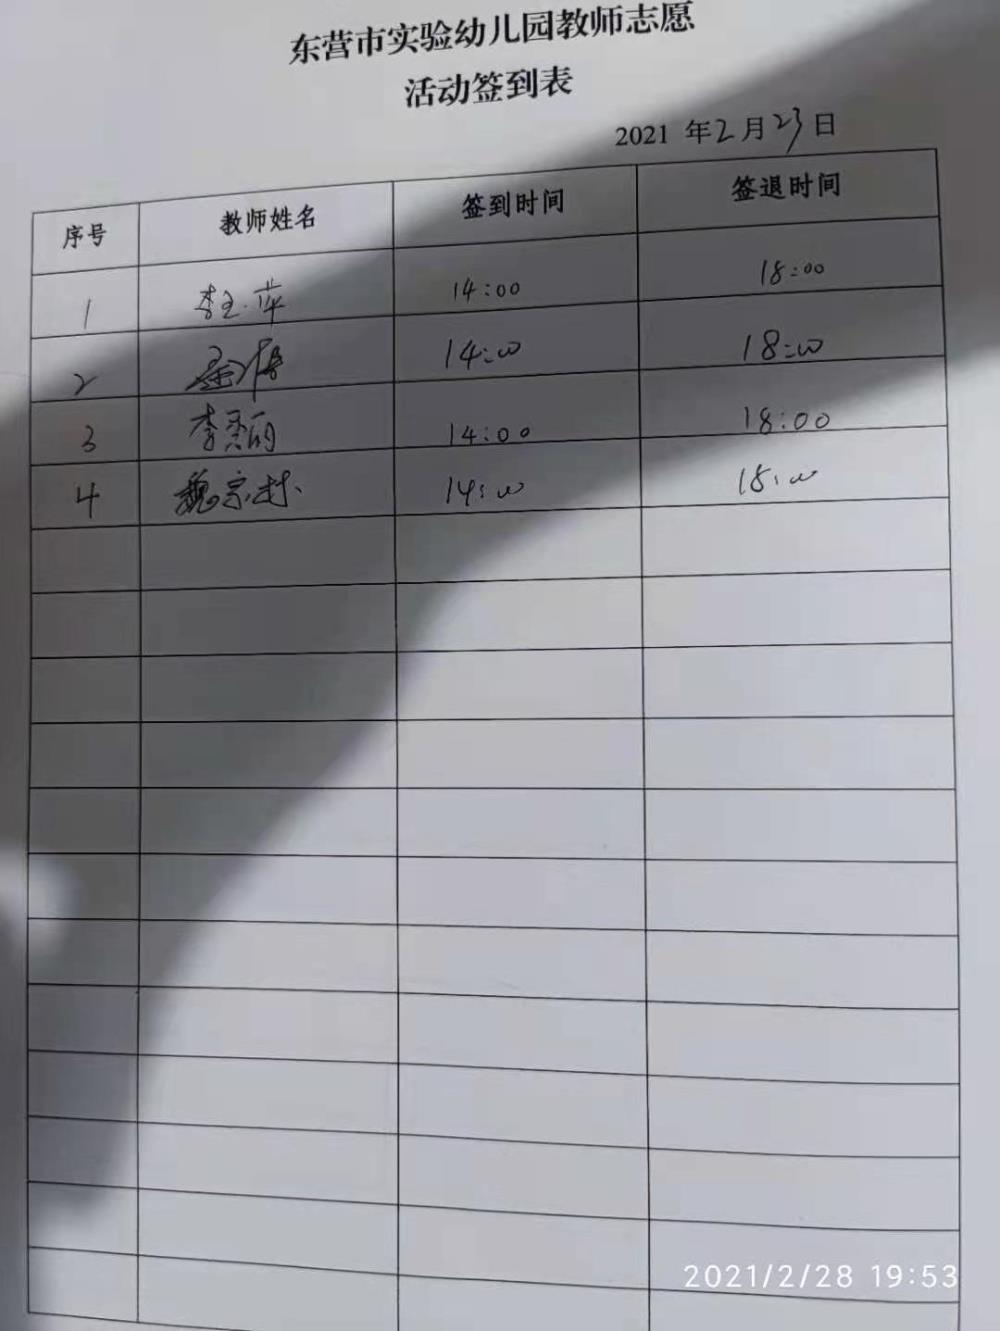 东营市实验幼儿园教师志愿
活动签到表
2021 年2月23日
序号 教师姓名 签到时间 签退时间
1 李玉萍 14:00 18:00
2 14:00 18:00
3 李秀丽 14:00 18:00
4 魏宗林 14:00 18:00
2021/2/28 19:53